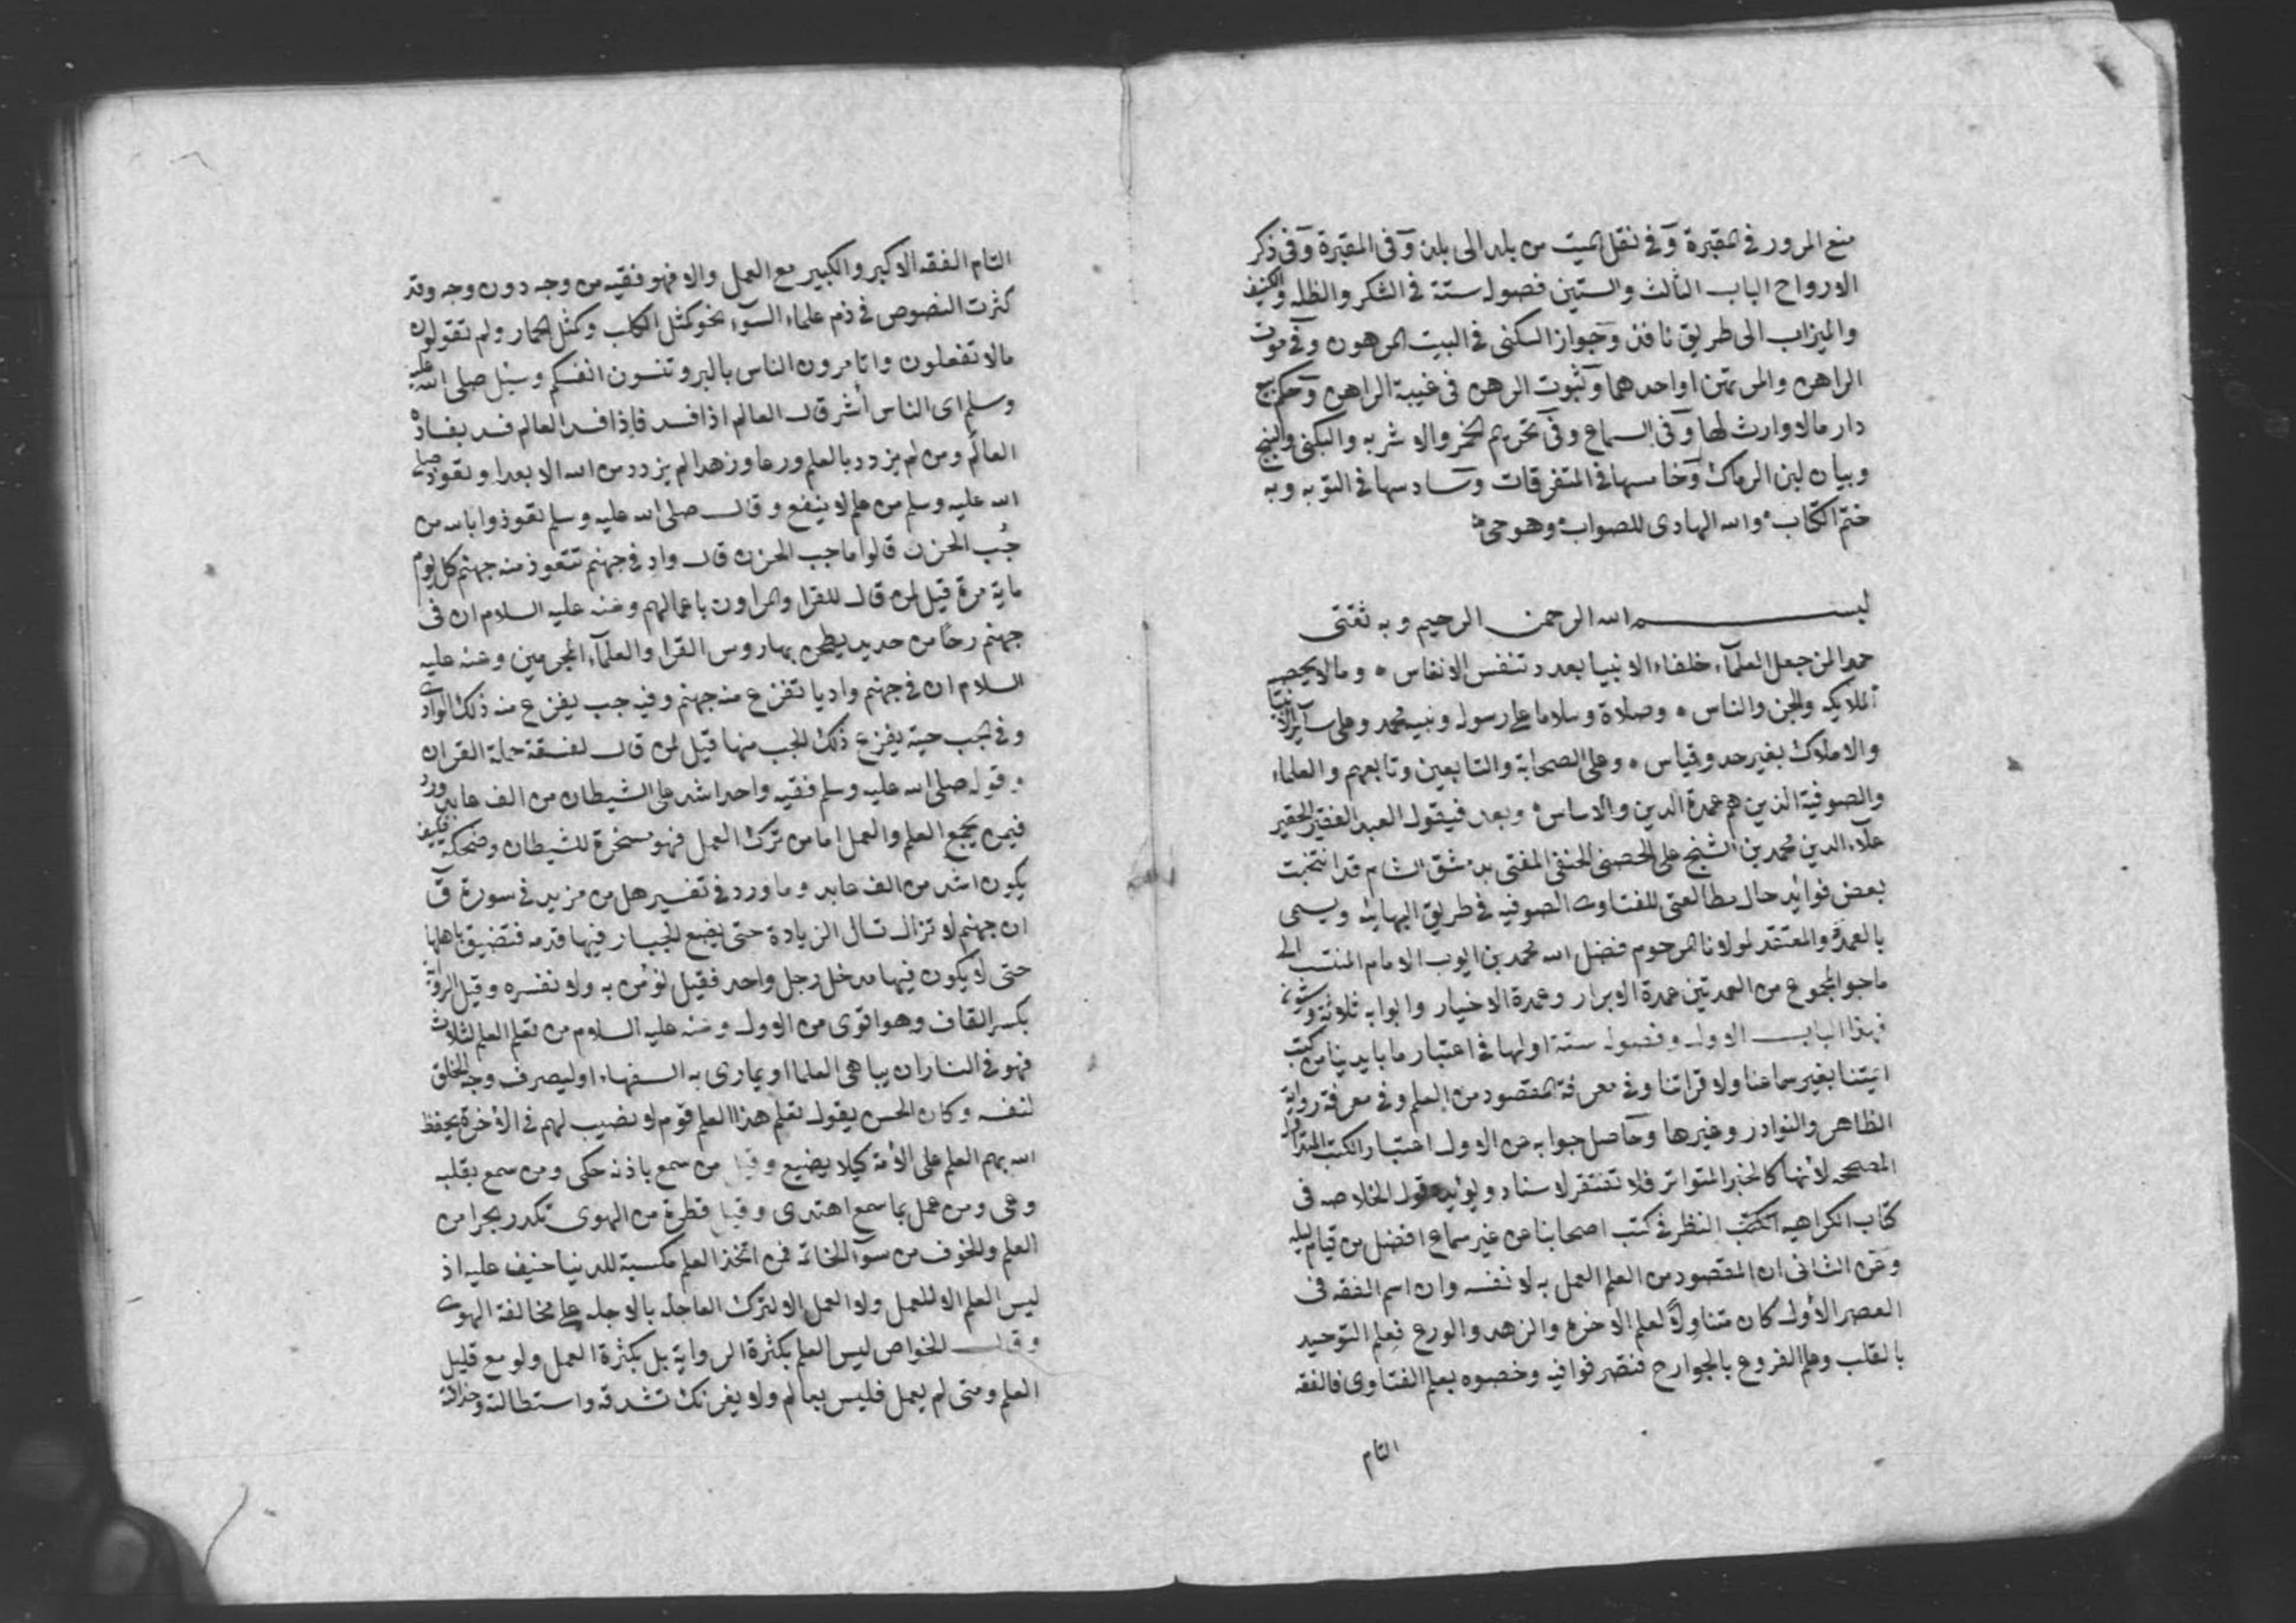 منع المرور في المقبرة وفي نقل الميت من بلد الى بلد وفى المقبرة وفى ذكر
الارواح الباب الثالث والستين فصوله ستة في الشكر والظله والكنيف
والميزاب الى طريق نافذ وجواز السكنى في البيت المرهون وفي موت
الراهن والمرتهن او احدهما وثبوت الرهن فى غيبة الراهن وحكم بيع
دار مالا وارث لها وفى السماع وفى تحريم الخمر والاشربه والبكنى والبنج
وبيان لبن الرماك وخامسها فى المتفرقات وسادسها في التوبه وبه
ختم الكتاب والله الهادى للصواب وهو حى
بسم الله الرحمن الرحيم وبه ثقتى
حمدا لمن جعل العلماء خلفاء الانبيا بعدد تنفس الانفاس ه ومالا يحصيه
الملايكه والجن والناس ه وصلاة وسلاما على رسوله ونبيه محمد وعلى ساير الانبيا
والاملاك بغير حد وقياس ه وعلى الصحابة والتابعين وتابعهم والعلماء
والصوفية الذين هم عمدة الدين والاساس ه وبعد فيقول العبد الفقير الحقير
علاء الدين محمد بن الشيخ على الحصنى الحنفى المفتى بدمشق الشام قد انتخبت
بعض فوائد حال مطالعتى للفتاوى الصوفيه في طريق البهائيه ويسمى
بالعمدة والمعتقد لمولانا المرحوم فضل الله محمد بن ايوب الامام المنتسب الى
ماجو المجموع من العمدتين عمدة الابرار وعمدة الاخيار وابوابه ثلاثة وستون
فهذا الباب الاول وفصوله ستة اولها في اعتبار ما بايدينا من كتب
ائيتنا بغير سماعنا ولا قراتنا وفي معرفة المقصود من العلم وفي معرفة رواية
الظاهر والنوادر وغيرها وحاصل جوابه عن الاول اعتبار الكتب المتداوله
المصححه لانها كالخبر المتواتر فلا تفتقر لاسناد ويؤيده قول الخلاصه فى
كتاب الكراهيه النظر في كتب اصحابنا من غير سماع افضل من قيام ليله
وعن الثانى ان المقصود من العلم العمل به لا نفسه وان اسم الفقه فى
العصر الاول كان متناولا لعلم الاخره والزهد والورع فعلم التوحيد
بالقلب وعلم الفروع بالجوارح فتصرفوا فيه وخصوه بعلم الفتاوى فالفقه
التام
التام الفقه الاكبر والكبير مع العمل والا فهو فقيه من وجه دون وجه وقد
كثرت النصوص في ذم علماء السوء نحو كمثل الكلب وكمثل الحمار ولم تقولون
مالا تفعلون واتامرون الناس بالبر وتنسون انفسكم وسئل صلى الله عليه
وسلم اى الناس أشر قال العالم اذا فسد فاذا فسد العالم فسد بفساده
العالَم ومن لم يزدد بالعلم ورعا وزهدا لم يزدد من الله الا بعدا وتعوذ صلى
الله عليه وسلم من علم لا ينفع وقال صلى الله عليه وسلم تعوذوا بالله من
جُب الحزن قالوا ما جب الحزن قال وادٍ في جهنم تتعوذ منه جهنم كل يوم
ماية مرة قيل لمن قال للقرا والمراون باعمالهم وعنه عليه السلام ان فى
جهنم رحًا من حديد يطحن بها روس القرا والعلماء المجرمين وعنه عليه
السلام ان في جهنم واديا تفزع منه جهنم وفيه جب يفزع منه ذلك الوادى
وفى الجب حية يفزع ذلك الجب منها قيل لمن قال لفسقة حملة القران
وقوله صلى الله عليه وسلم فقيه واحد اشد على الشيطان من الف عابد ورد
فيمن يجمع العلم والعمل اما من ترك العمل فهو مسخرة للشيطان وضحكة فكيف
يكون اشد من الف عابد وما ورد في تفسير هل من مزيد في سورة ق
ان جهنم لا تزال تسال الزيادة حتى يضع الجبار فيها قدمه فتضيق باهلها
حتى لا يكون فيها مدخل رجل واحد فقيل نؤمن به ولا نفسره وقيل الرواية
بكسر القاف وهو اقوى من الاول وعنه عليه السلام من تعلم العلم لثلاث
فهو فى النار ان يباهى العلما او يمارى به السفهاء او ليصرف وجه الخلق
لنفسه وكان الحسن يقول تعلم هذا العلم قوم لا نصيب لهم فى الاخرة يحفظ
الله بهم العلم على الأمة كيلا يضيع وقيل من سمع باذنه حكى ومن سمع بقلبه
وعى ومن عمل بما سمع اهتدى وقيل قطرة من الهوى تكدر بحرا من
العلم والخوف من سوء الخاتمه فمن اتخذ العلم مكسبة للدنيا خيف عليه اذ
ليس العلم الا للعمل ولا العمل الا لترك العاجله بالاجله على مخالفة الهوى
وقال الخواص ليس العلم بكثرة الرواية بل بكثرة العمل ولو مع قليل
العلم ومتى لم يعمل فليس بعالم ولا يغرنك تشدقه واستطالته